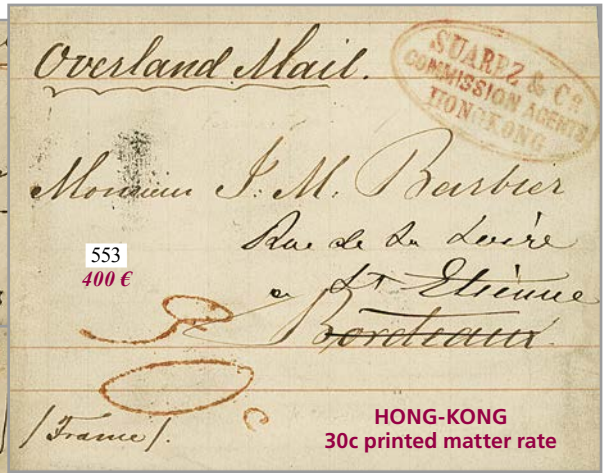 Overland Mail.
SUAREZ & Co
COMMISSION AGENTS
HONGKONG
Monsieur J. M. Barbier
Rue de la Loire
a St Etienne
Bordeaux.
553
400 €
/ France /.
HONG-KONG
30c printed matter rate